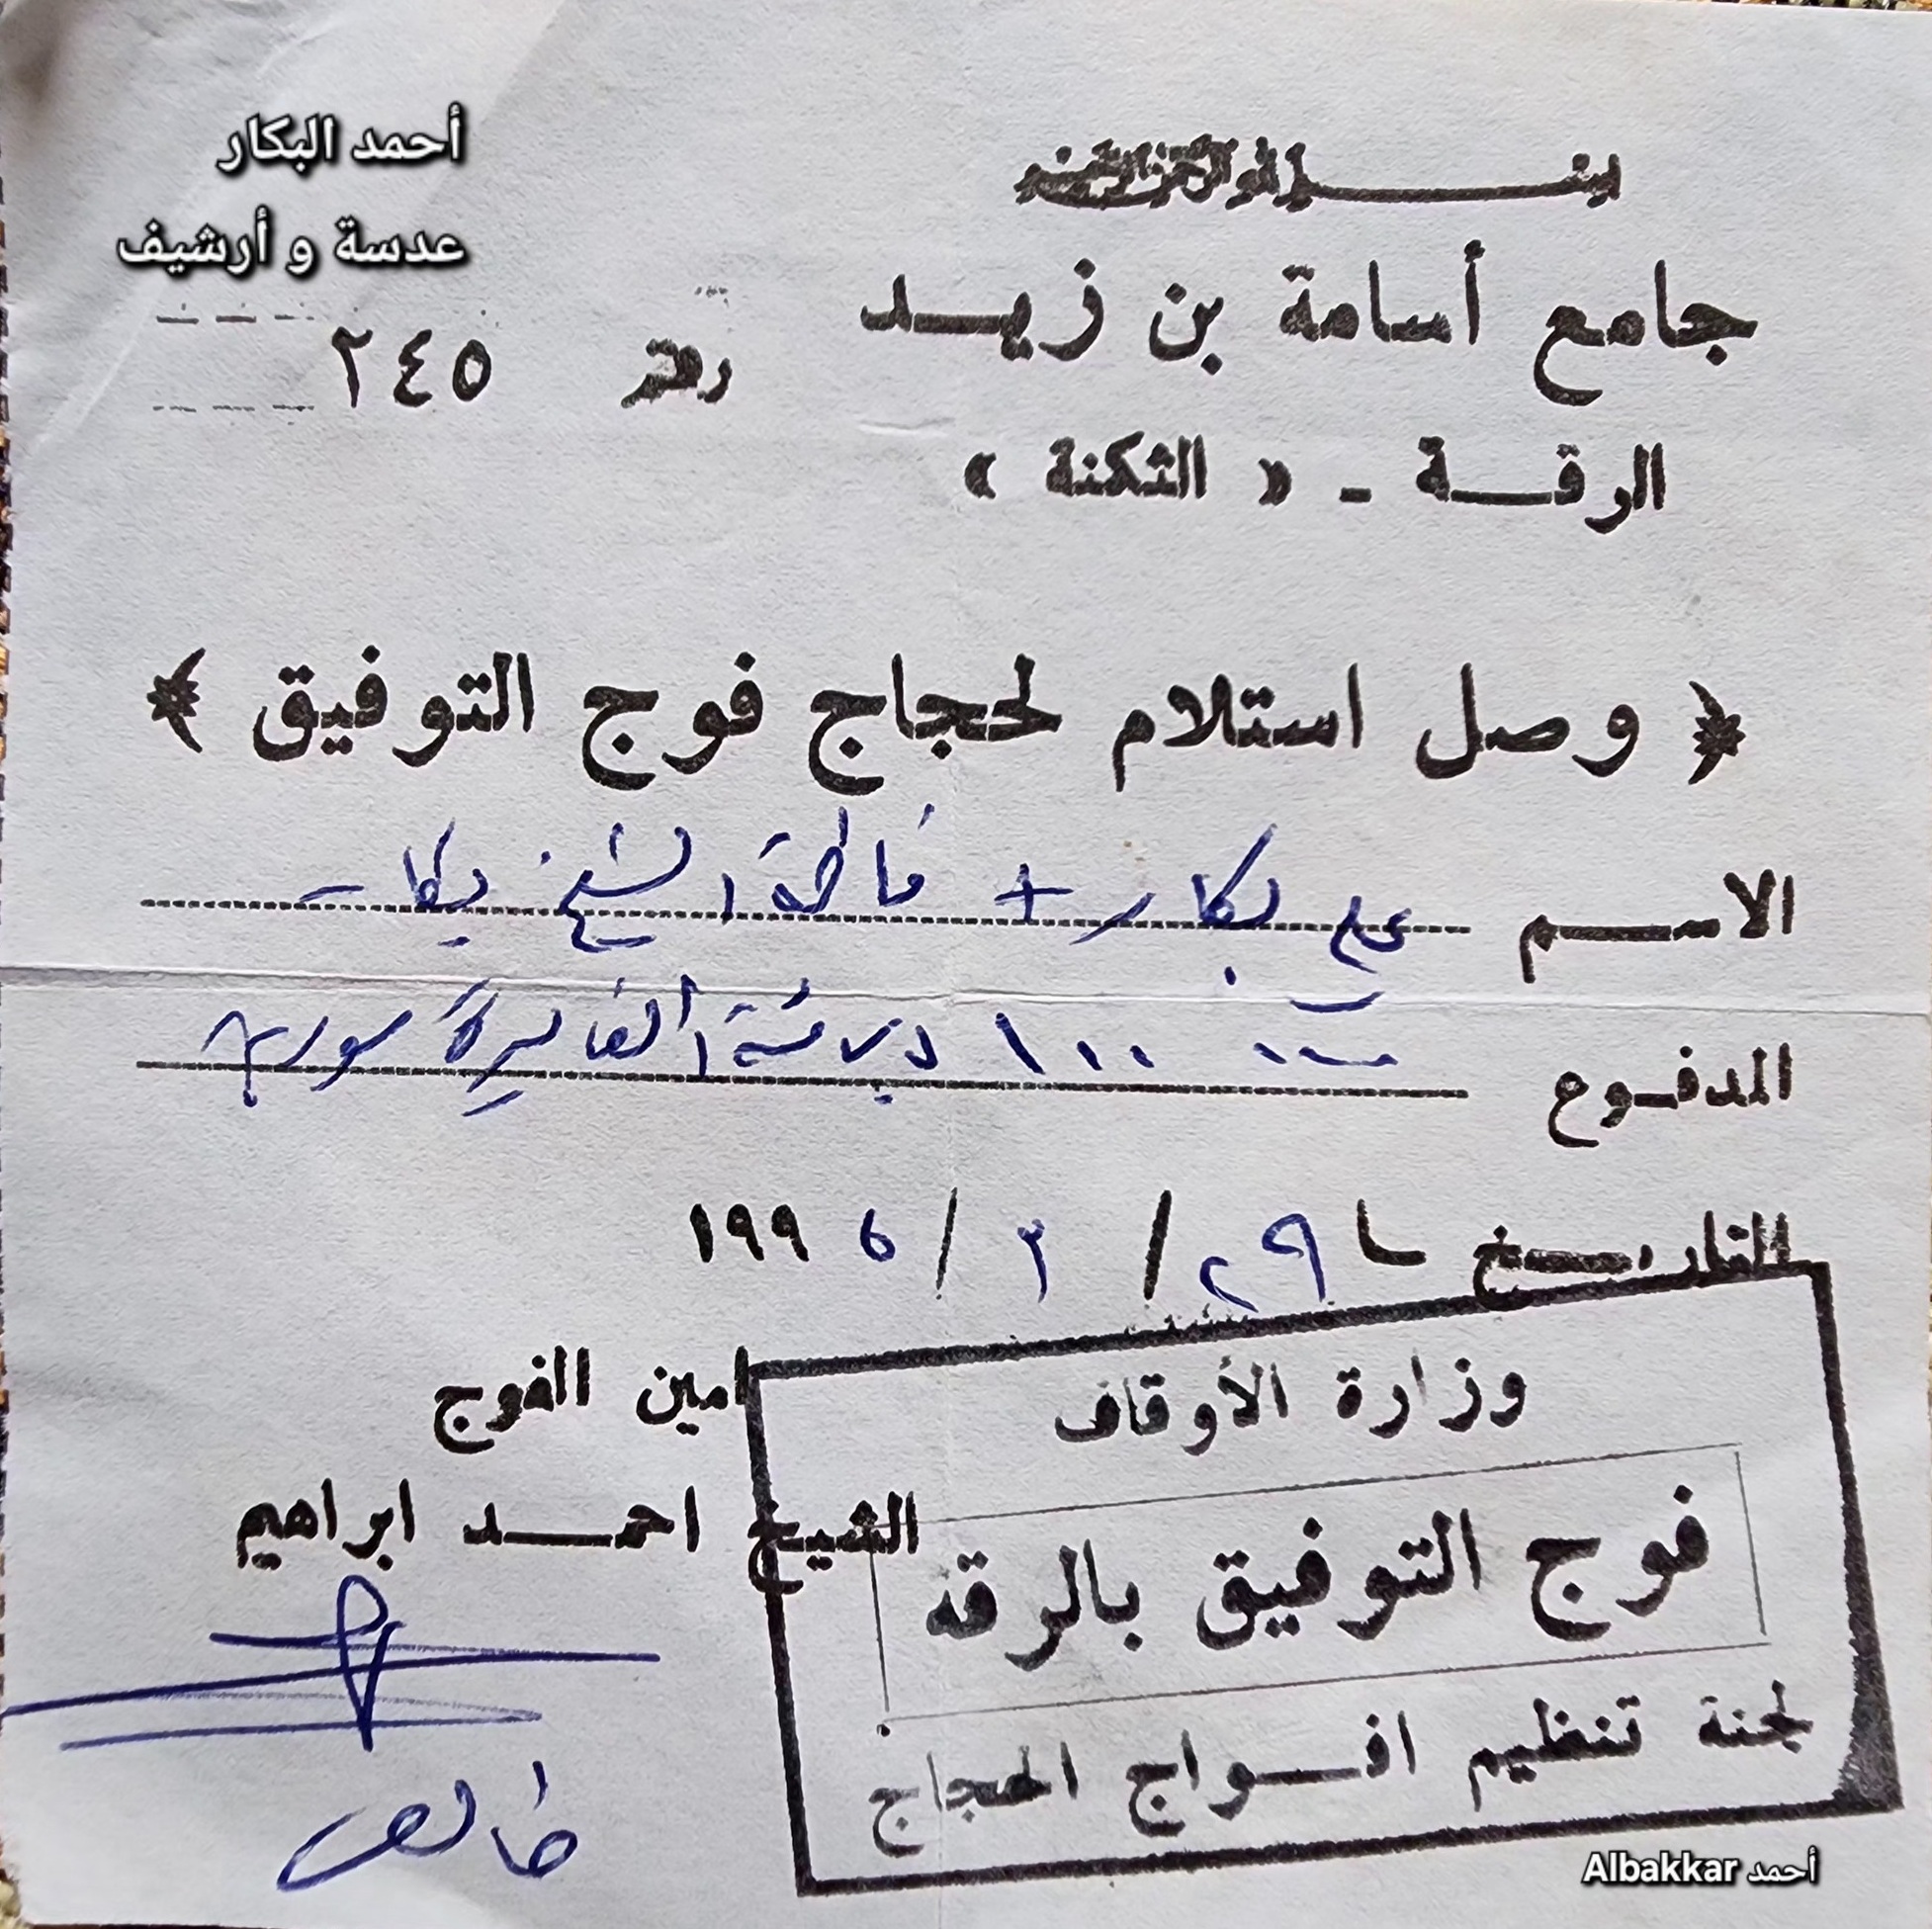 أحمد البكار
عدسة و أرشيف
بسم الله الرحمن الرحيم
جامع أسامة بن زيد
رقم ٢٤٥
الرقـة - « الثكنة »
﴿ وصل استلام لحجاج فوج التوفيق ﴾
الاسم علي بكار + فاطمة الشيخ بكار
المدفوع ١٠٠ ألفا ليرة سورية
التاريخ ٢٩ / ٣ / ١٩٩٦
امين الفوج
الشيخ احمد ابراهيم
وزارة الأوقاف
فوج التوفيق بالرقه
لجنة تنظيم افواج الحجاج
أحمد Albakkar